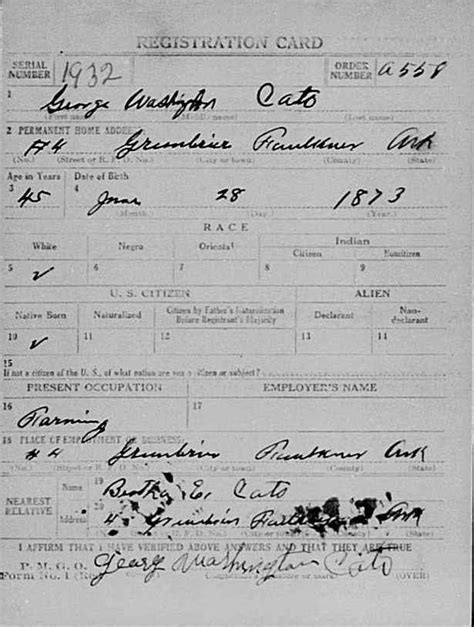 REGISTRATION CARD
SERIAL NUMBER 1932 ORDER NUMBER A558
1 George Washington Cato
(First name) (Middle name) (Last name)
2 PERMANENT HOME ADDRESS
#4 Greenbrier Faulkner Ark
(No.) (Street or R. F. D. No.) (City or town) (County) (State)
Age in Years Date of Birth
3 45 4 June 28 1873
(Month) (Day) (Year)
RACE
White Negro Oriental Indian
Citizen Noncitizen
5 ✓ 6 7 8 9
U. S. CITIZEN ALIEN
Native Born Naturalized Citizen by Father's Naturalization Before Registrant's Majority Declarant Non-declarant
10 ✓ 11 12 13 14
15
If not a citizen of the U. S., of what nation are you a citizen or subject?
PRESENT OCCUPATION EMPLOYER'S NAME
16 Farming 17
18 PLACE OF EMPLOYMENT OR BUSINESS:
#4 Greenbrier Faulkner Ark
(No.) (Street or R. F. D. No.) (City or town) (County) (State)
NEAREST RELATIVE
19 Name Bertha E. Cato
20 Address 4 Greenbrier Faulkner Ark
I AFFIRM THAT I HAVE VERIFIED ABOVE ANSWERS AND THAT THEY ARE TRUE
P. M. G. O.
Form No. 1 (Red) George Washington Cato
(OVER)